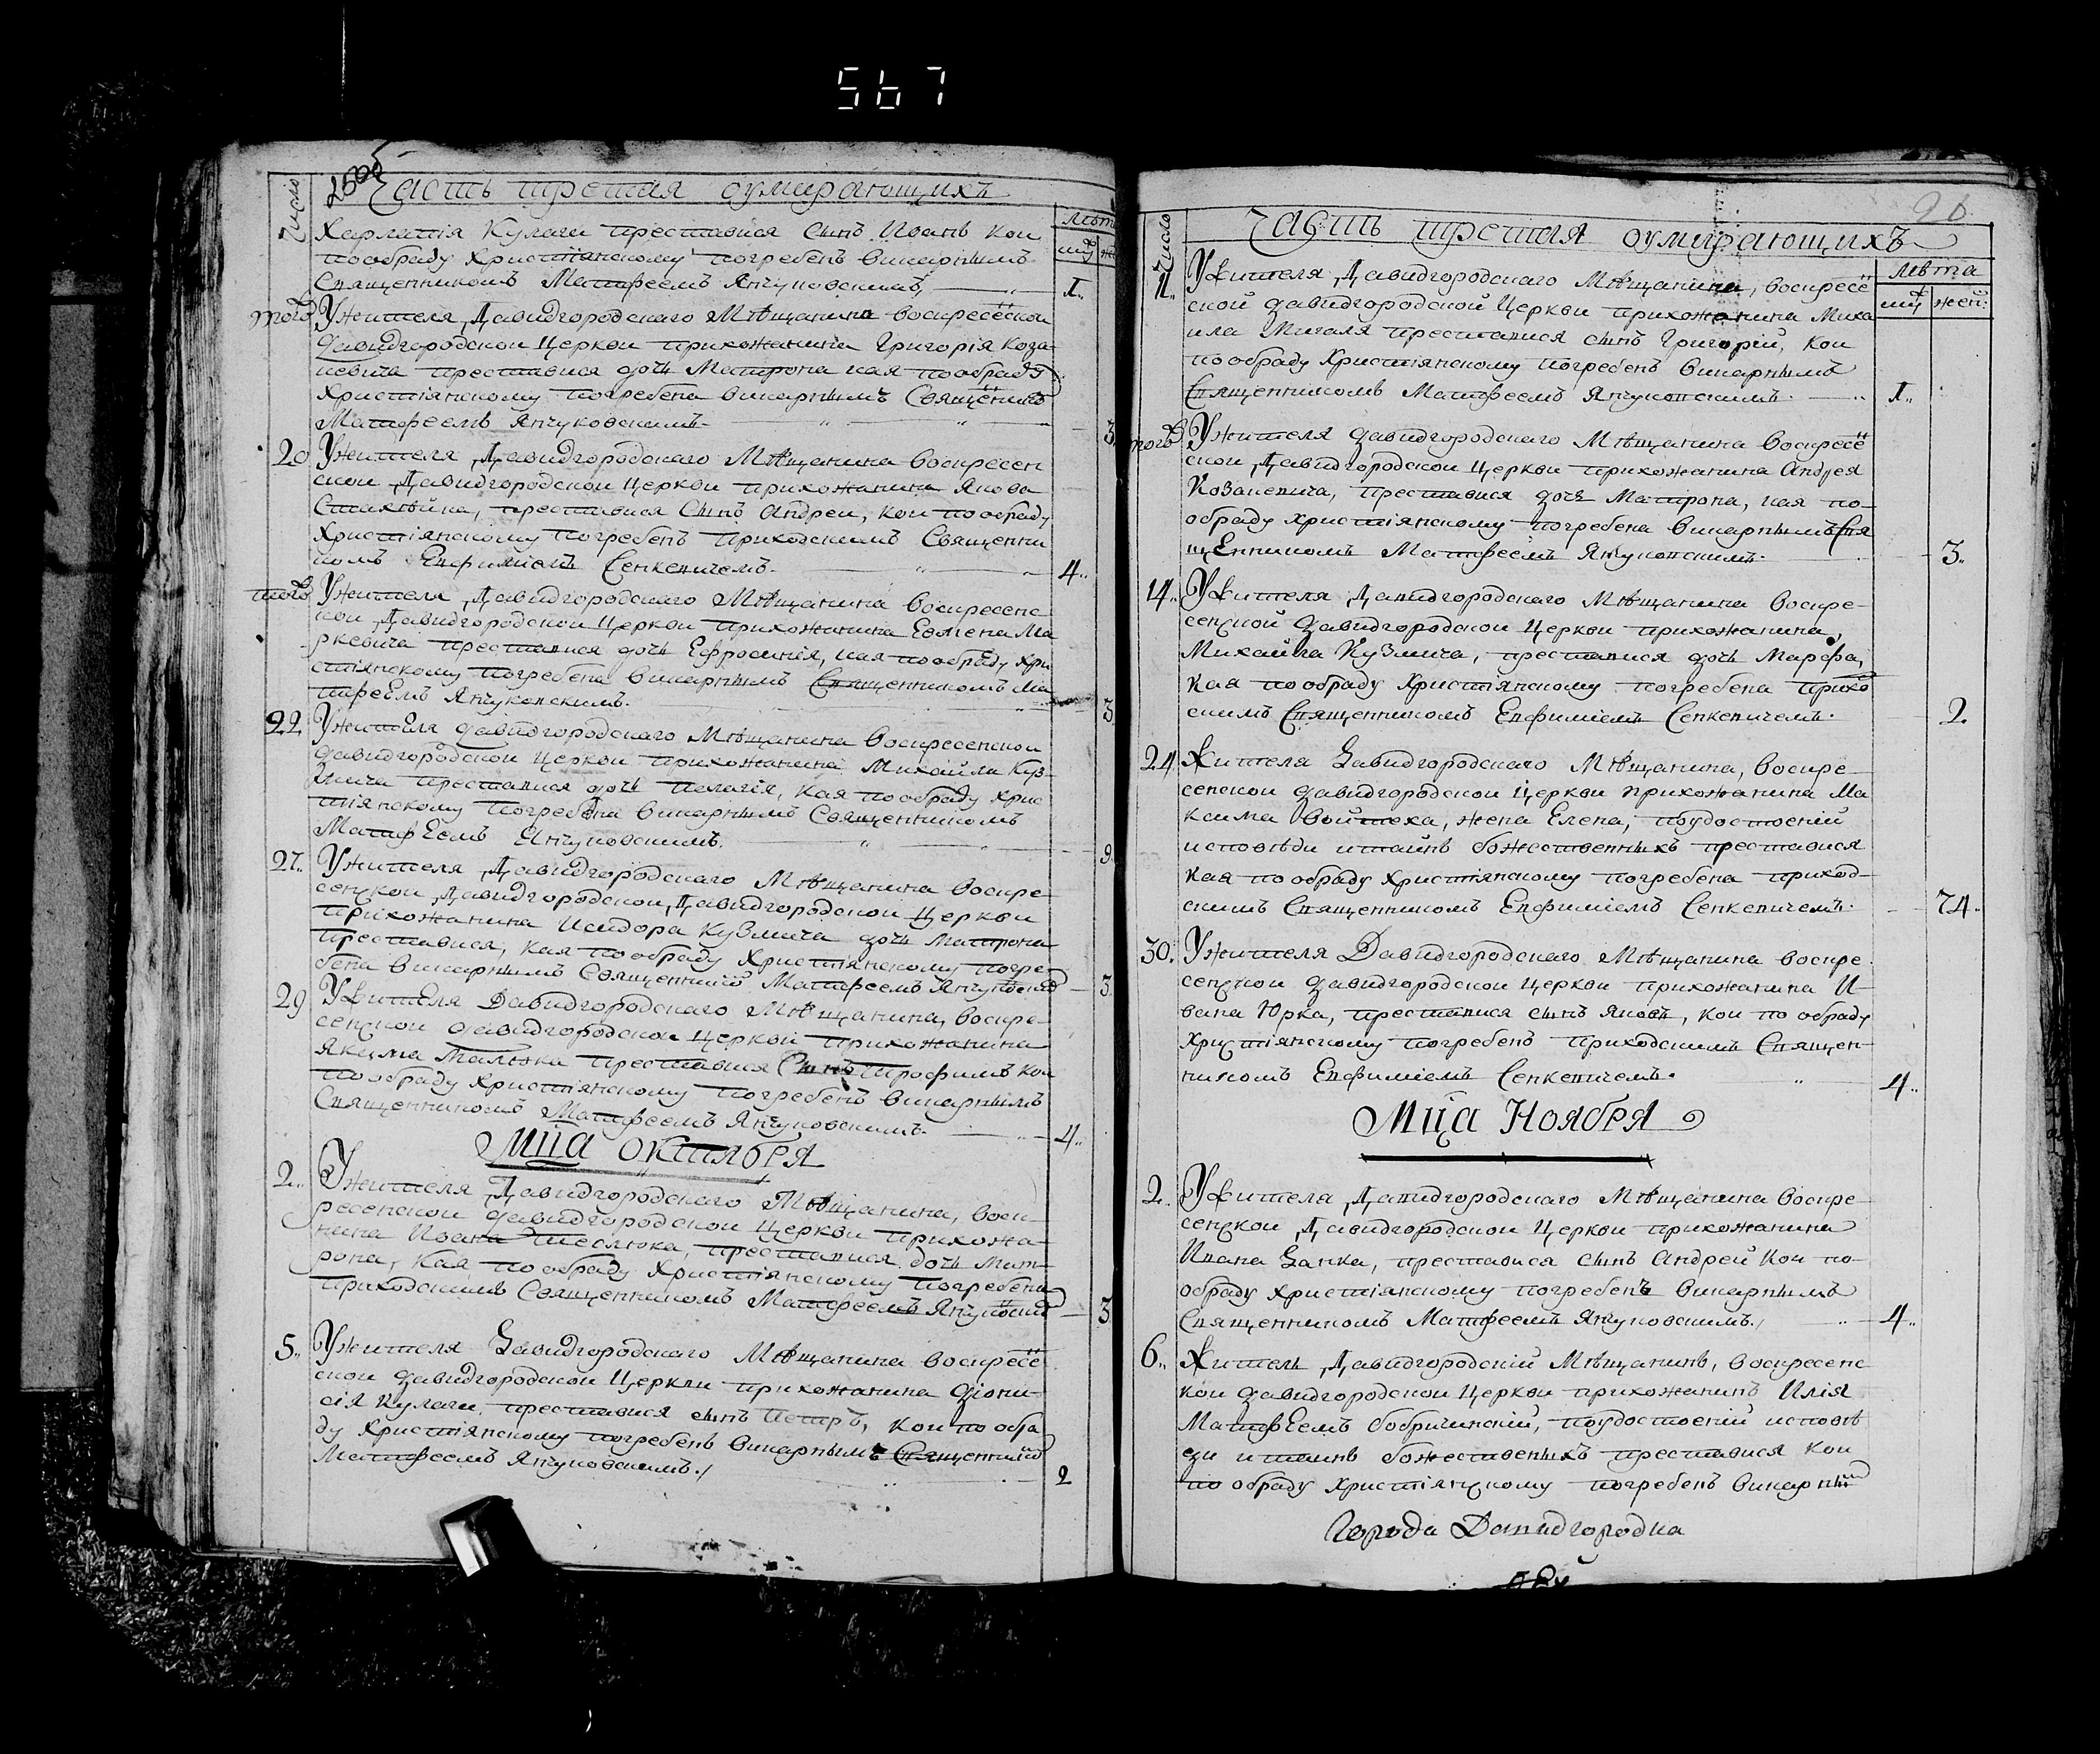 567
Число
Часть третая оумирающихъ
Лѣт
муж
Харлампія Кулаги преставися сынъ Иванъ кои
пообраду Христіянскому погребенъ викарнымъ
Священникомъ Матфеемъ Янчуковскимъ,
1..
того Ужителя Давидгородскаго Мѣщанина воскресеской
Давидгородскои Церкви прихожанина Григорія Коза
кевича преставися дочь Матрона кая пообраду
Христіянскому погребена викарнымъ Священико
Матфеемъ Янчуковскимъ.
3
20 Ужителя Давидгородскаго Мѣщанина воскресен
скои Давидгородскои Церкви прихожанина Якова
преставися Сынъ Андреи, кои пообраду
Христіянскому погребенъ приходскимъ Священни
комъ Евфиміемъ Сенкевичемъ.
4..
того Ужителя Давидгородскаго Мѣщанина воскресенс
кои Давидгородскои Церкви прихожанина Евмена Ма
ркевича преставися дочь Ефросинія, кая пообраду хри
стіянскому погребена викарнымъ Священникомъ Ма
тфеемъ Янчуковскимъ.
3
22 Ужителя Давидгородскаго Мѣщанина воскресенскои
Давидгородскои Церкви прихожанина Михайла Куз
мича преставися дочь Пелагія, кая пообраду хрис
тіянскому погребена викарнымъ Священникомъ
Матфеемъ Янчуковскимъ.
27.. Ужителя Давидгородскаго Мѣщанина воскре
сенскои Давидгородскои, Давидгородскои Церкви
прихожанина Исидора Кузмича дочь Матрона
преставися, кая пообраду Христіянскому погре
бена викарнымъ Священнико Матфеемъ Янчуковски
3
29 Ужителя Давидгородскаго Мѣщанина, воскре
сенскои давидгородскои церкви прихожанина
Якима Малюка преставися Сынъ Трофимъ кои
пообраду Христіянскому погребенъ викарнымъ
Священникомъ Матфеемъ Янчуковскимъ.
4..
Мца Октября
2.. Ужителя Давидгородскаго Мѣщанина, воск
ресенскои давидгородскои Церкви прихожа
нина Ивана Теслюка, преставися дочь Мат
рона, кая по обраду Христіянскому погребена
приходскимъ Священникомъ Матфеемъ Янчуковски
3
5.. Ужителя Давидгородскаго Мѣщанина воскресе
скои давидгородскои Церкви прихожанина Діони
сія Кулаги, преставися сынъ Петръ, кои по обра
ду Христіянскому погребенъ викарнымъ Священнико
Матфеемъ Янчуковскимъ./
2
Число
Часть третая оумирающихъ
Лѣта
муж жен:
11.. Ужителя Давидгородскаго Мѣщанина, воскресе
ской давидгородской Церкви прихожанина Миха
ила Мигаля преставися сынъ Григорій, кои
пообраду Христіянскому погребенъ викарнымъ
Священникомъ Матфеемъ Янчуковскимъ.
1..
того Ужителя давидгородскаго Мѣщанина воскресе
скои Давидгородскои Церкви прихожанина Андрея
Козакевича, преставися дочь Матрона, кая по-
обраду христіянскому погребена викарнымъ Свя
щенникомъ Матфеемъ Янчуковскимъ.
3.
14.. Ужителя Давидгородскаго Мѣщанина воскре-
сенской давидгородскои Церкви прихожанина,
Михайла Кузмича, преставися дочь Марфа,
кая пообраду Христіянскому погребена прихо
скимъ Священникомъ Евфиміемъ Сенкевичемъ.
2.
24 Жителя Давидгородскаго Мѣщанина, воскре-
сенскои давидгородскои Церкви прихожанина Ма
ксима Войтеха, жена Елена, поудостоеній
исповѣди итайнъ божественныхъ преставися
кая пообраду Христіянскому погребена приход-
скимъ Священникомъ Евфиміемъ Сенкевичемъ.
74.
30. Ужителя Давидгородскаго Мѣщанина воскре
сенскои давидгородскои Церкви прихожанина И-
вана Юрка, преставися сынъ Яковъ, кои по обраду
Христіянскому погребенъ приходскимъ Священ-
никомъ Евфиміемъ Сенкевичемъ.
4..
Мца Ноября
2.. Ужителя Давидгородскаго Мѣщанина воскре-
сенскои Давидгородскои Церкви прихожанина
Ивана Занка, преставися сынъ Андрей кои по-
обраду христіанскому погребенъ викарнымъ
Священникомъ Матфеемъ Янчуковскимъ./
4..
6.. Житель Давидгородскій Мѣщанинъ, воскресенс
кои давидгородскои Церкви прихожанинъ Илія
Матфеемъ Бобричинскій, поудостоеній исповѣ
ди итаинъ божественыхъ преставися кои
по обраду Христіянскому погребенъ викарны
Города Давидгородка